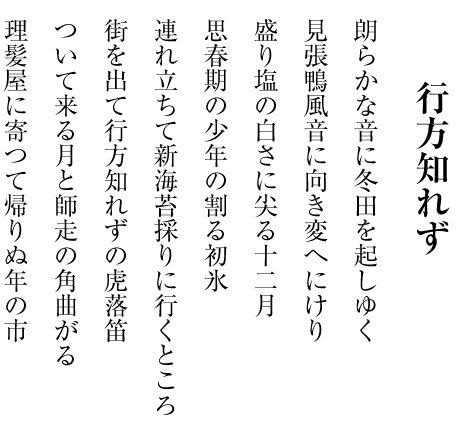 行方知れず
朗らかな音に冬田を起しゆく
見張鴨風音に向き変へにけり
盛り塩の白さに尖る十二月
思春期の少年の割る初氷
連れ立ちて新海苔採りに行くところ
街を出て行方知れずの虎落笛
ついて来る月と師走の角曲がる
理髪屋に寄つて帰りぬ年の市